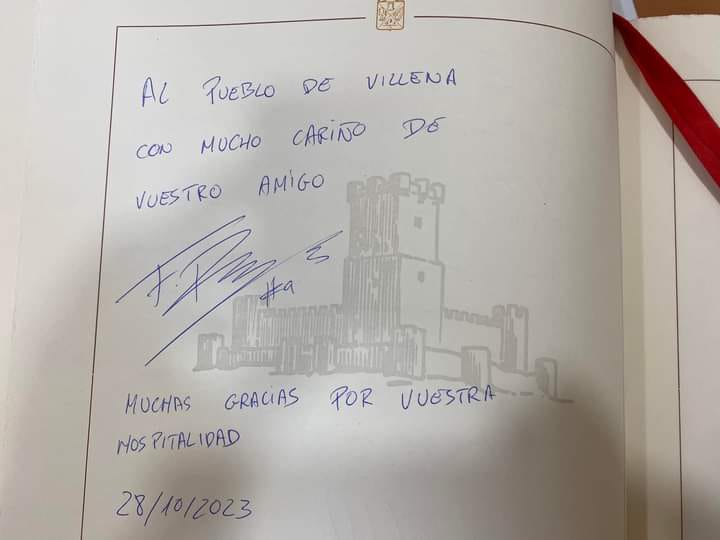 AL PUEBLO DE VILLENA
CON MUCHO CARIÑO DE
VUESTRO AMIGO
#9
MUCHAS GRACIAS POR VUESTRA
HOSPITALIDAD
28/10/2023